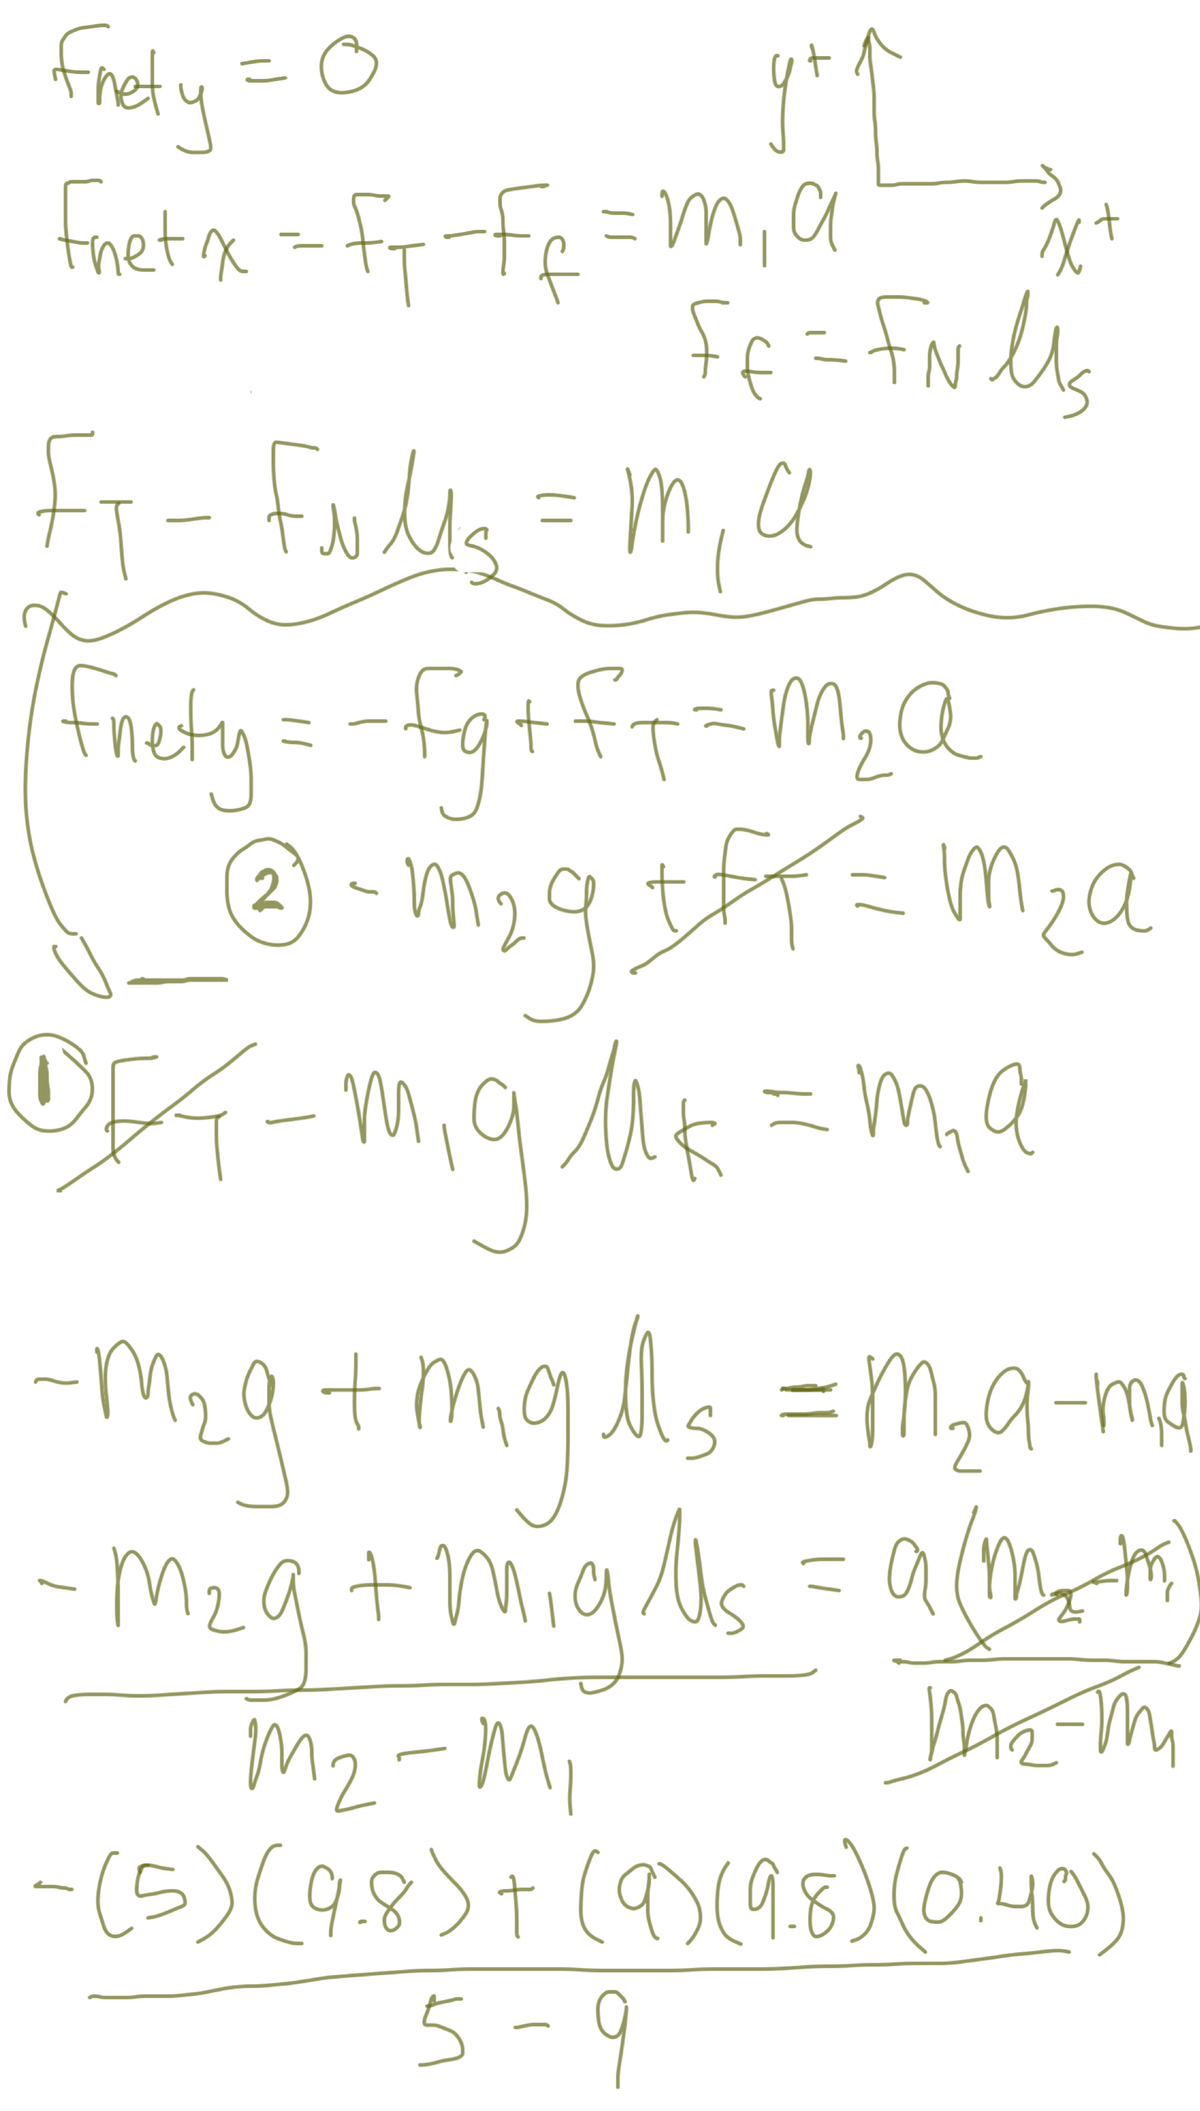 Fnety = 0
y+
x+
Fnetx = FT - Ff = m1a
Ff = FN μs
FT - FNμs = m1a
Fnety = -Fg + FT = m2a
② -m2g + FT = m2a
① FT - m1gμk = m1a
-m2g + m1gμs = m2a - m1a
-m2g + m1gμs = a(m2 - m1)
m2 - m1 m2 - m1
-(5)(9.8) + (9)(9.8)(0.40)
5 - 9